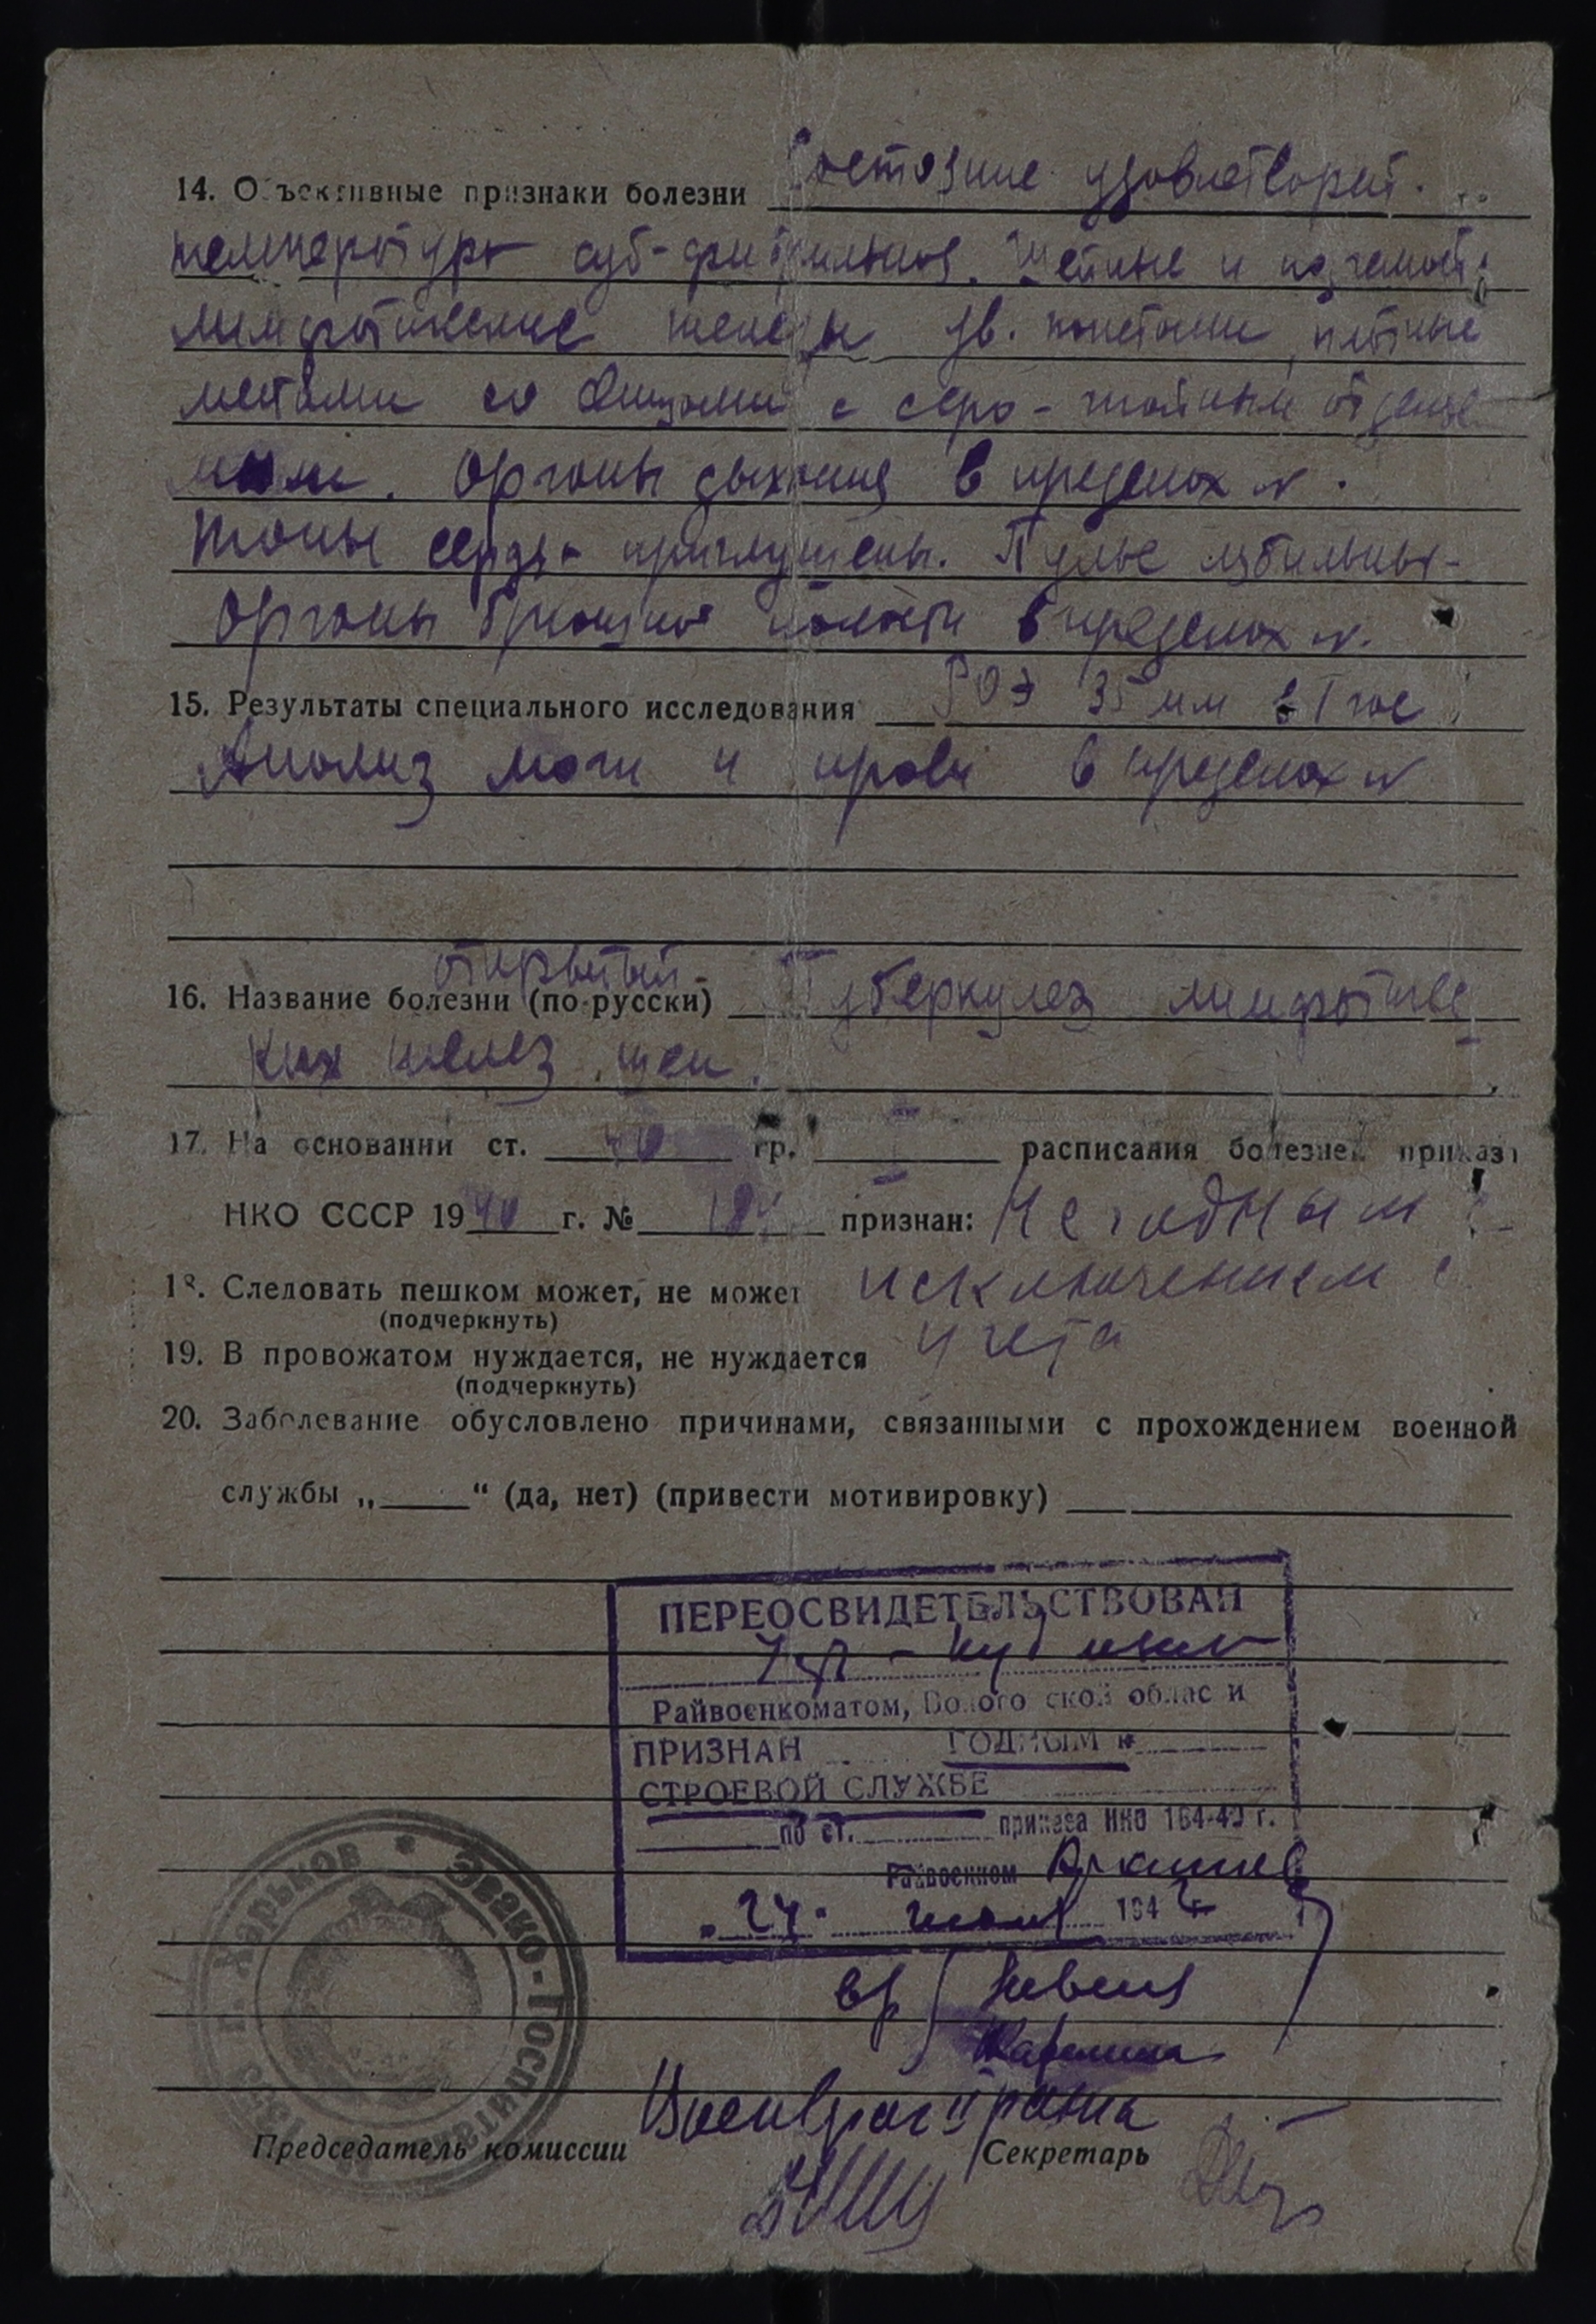 14. Объективные признаки болезни Состояние удовлетворит.
температура суб-фебрильная. Шейные и подчелюст.
лимфатические железы ув. плотные
местами со свищами с серо-гнойным отделяе
мым. Органы дыхания в пределах N.
Тоны сердца приглушены. Пульс лабильный
Органы брюшной полости в пределах N.
15. Результаты специального исследования РОЭ 35 мм в 1 час
Анализ мочи и крови в пределах N
открытый
16. Название болезни (по-русски) Туберкулез лимфатичес
ких желез шеи.
17. На основании ст. 40 гр. I расписания болезней приказа
НКО СССР 1940 г. № 184 признан: Негодным с
18. Следовать пешком может, не может исключением с
(подчеркнуть)
19. В провожатом нуждается, не нуждается учета
(подчеркнуть)
20. Заболевание обусловлено причинами, связанными с прохождением военной
службы „ “ (да, нет) (привести мотивировку)
ПЕРЕОСВИДЕТЕЛЬСТВОВАН
Райвоенкоматом, Вологодской области
ПРИЗНАН ГОДНЫМ к
СТРОЕВОЙ СЛУЖБЕ
по ст. приказа НКО 184-40 г.
Райвоенком
„24“ 194 г.
вр
Военврач II ранга
Председатель комиссии Секретарь
г. Харьков * Эвако-Госпиталь № 1353